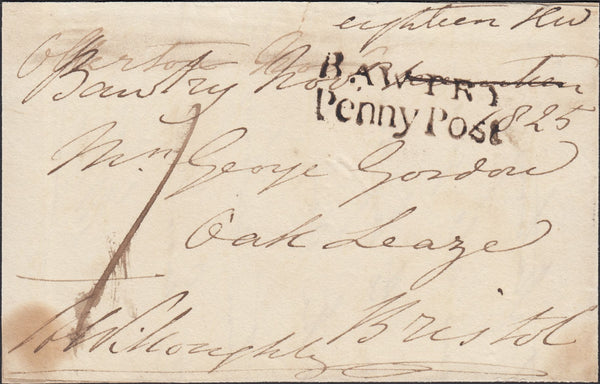 eighteen
Bawtry Nov.
BAWTRY
Penny Post
1825
Mr George Gordon
Oak Leaze
Bristol
H Willoughby